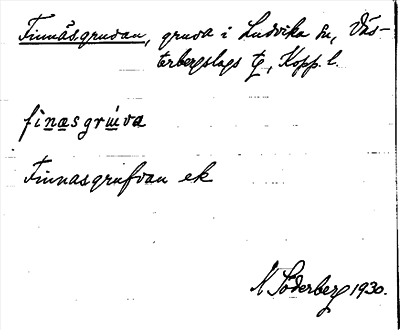 Finnåsgruvan, gruva i Ludvika sn, Väs-
terbergslags tg, Kopp. l.
finasgruva
Finnasgrufvan ek
N Söderberg 1930.